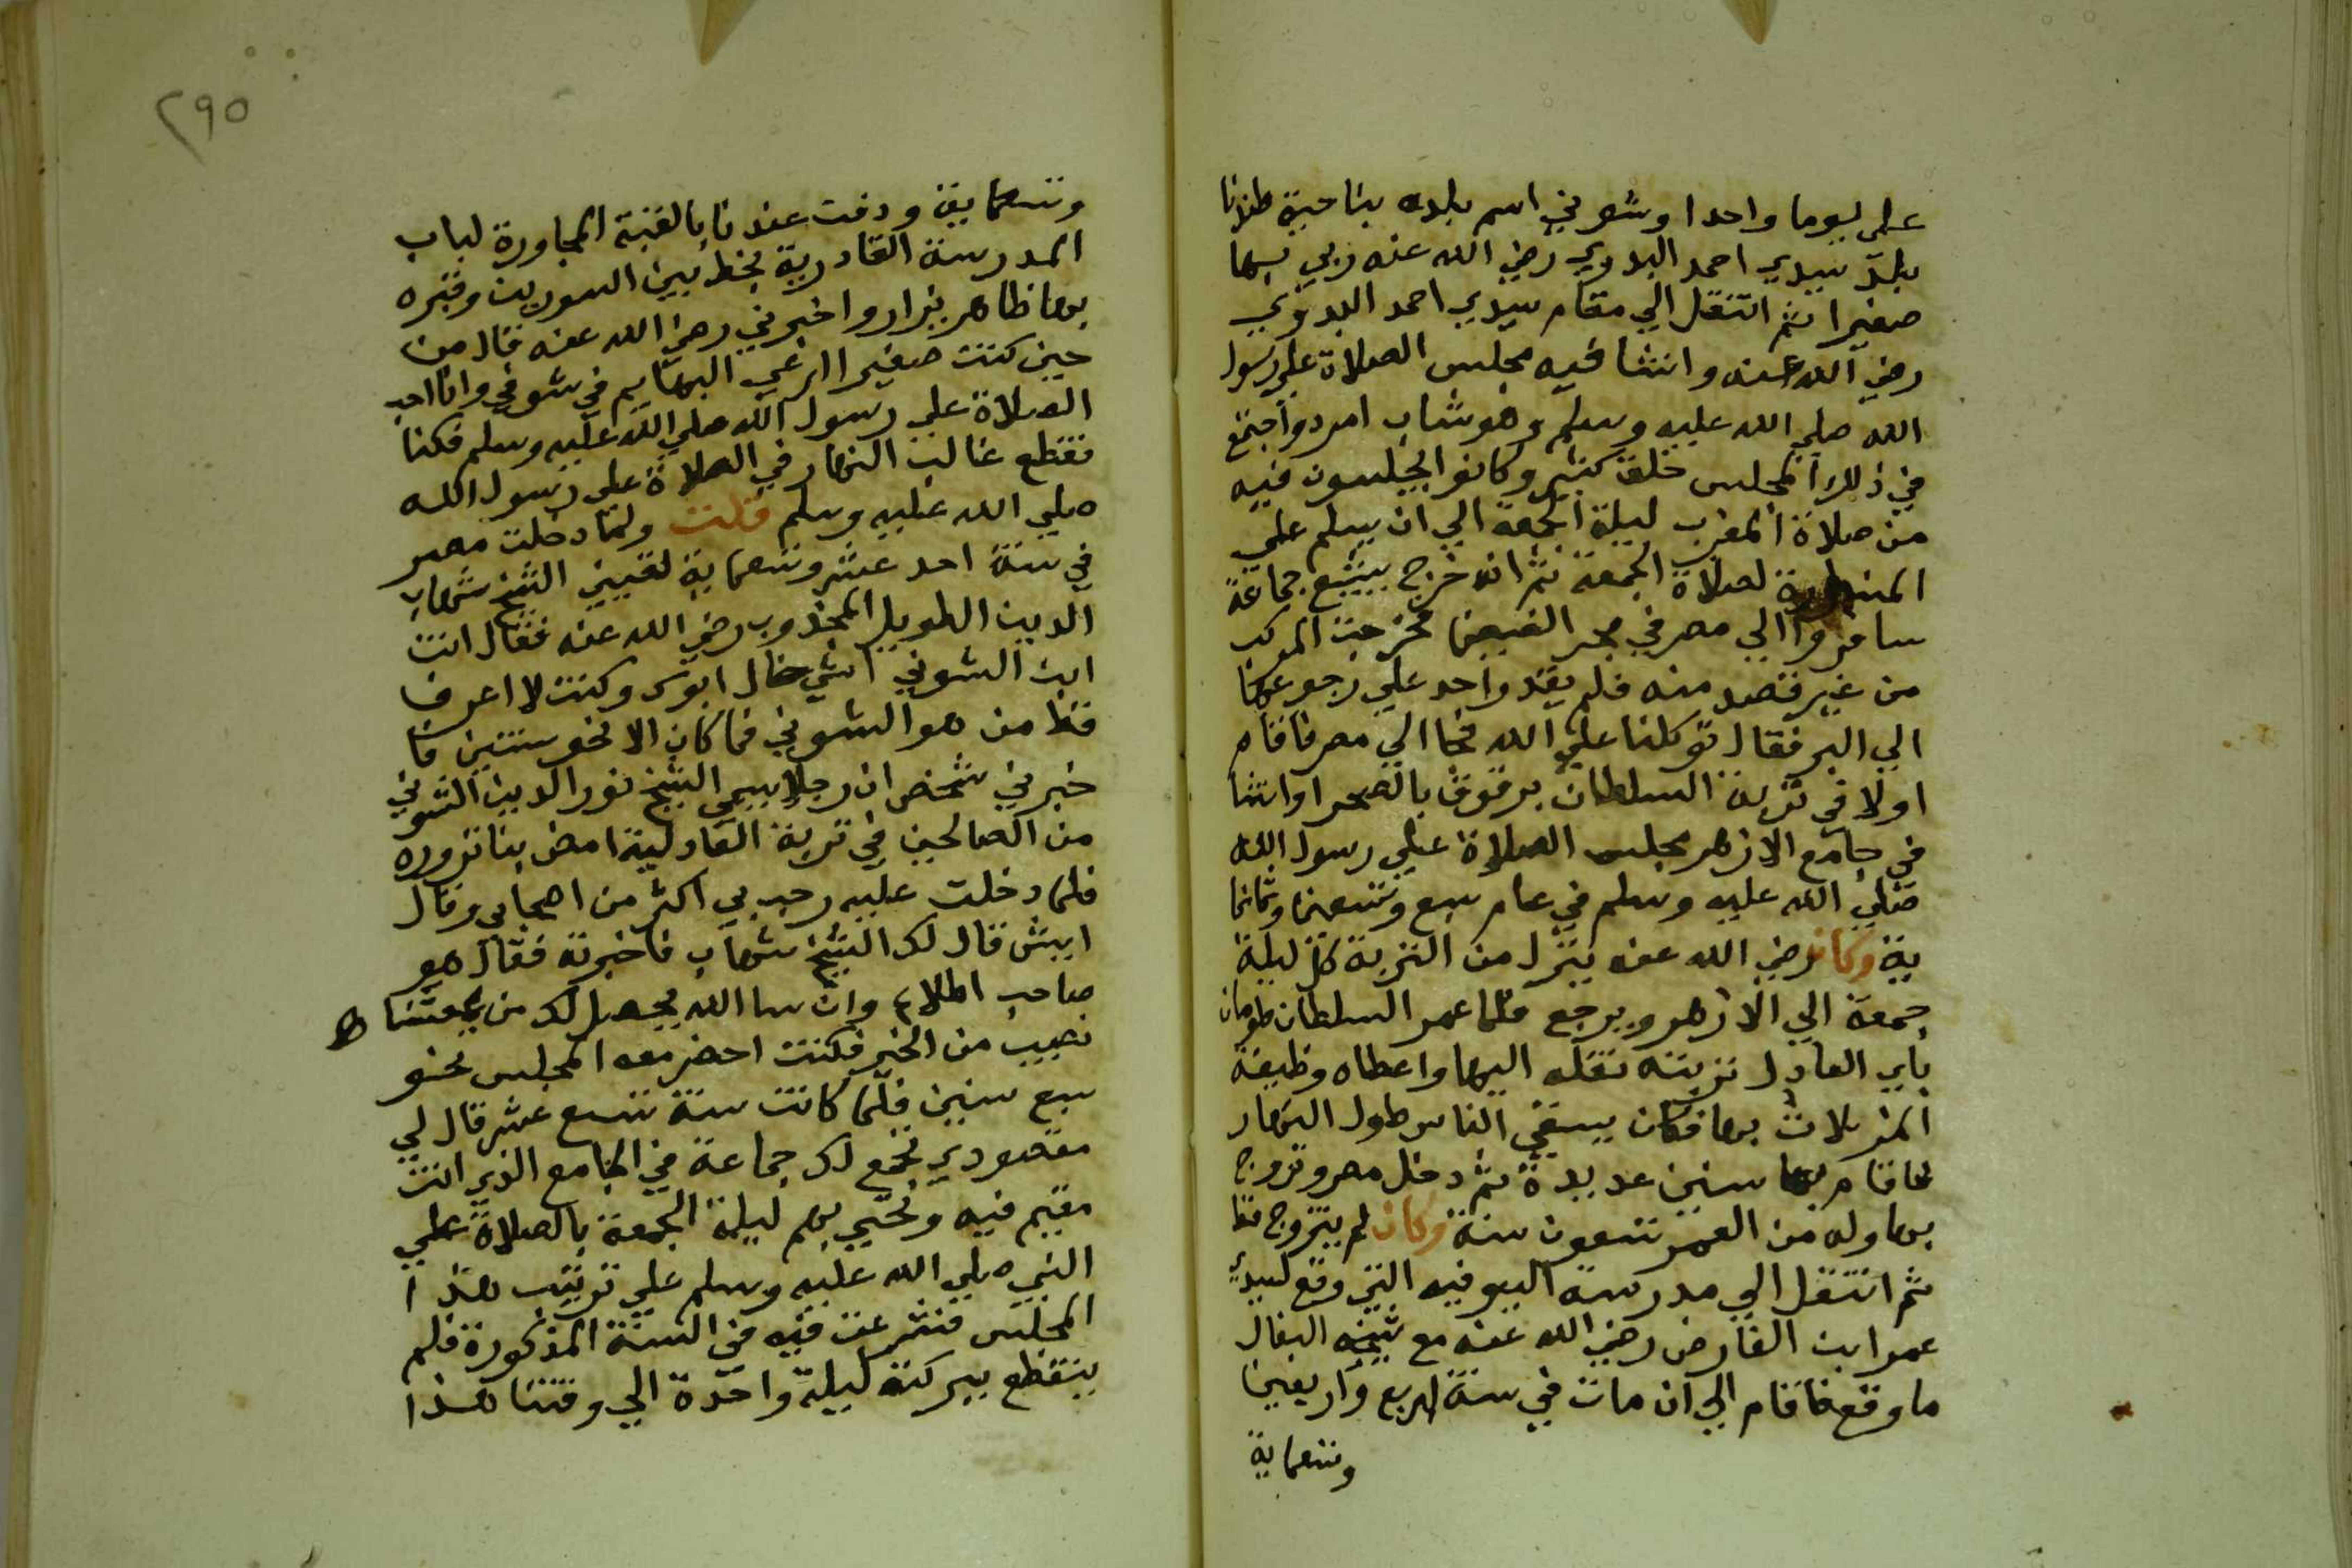 علي يوما واحدا وشوني اسم بلده بناحية طندتا
بلد سيدي احمد البدوي رضي الله عنه ربي بها
صغيرا ثم انتقل الي مقام سيدي احمد البدوي
رضي الله عنه وانشا فيه مجلس الصلاة علي رسول
الله صلي الله عليه وسلم وهو شاب امرد واجتمع
في ذلك المجلس خلق كثير وكانوا يجلسون فيه
من صلاة المغرب ليلة الجمعة الي ان يسلم علي
المنارة لصلاة الجمعة ثم انه خرج يشيع جماعة
سافروا الي مصر في بحر الفيض فخرجت المركب
من غير قصد منه فلم يقد واحد علي رجوعها
الي البر فقال توكلنا علي الله فجا الي مصر فاقام
اولا في تربة السلطان برقوق بالصحرا وانشا
في جامع الازهر مجلس الصلاة علي رسول الله
صلي الله عليه وسلم في عام سبع وتسعين وثمانما
ية وكان رضي الله عنه ينزل من التربة كل ليلة
جمعة الي الازهر ويرجع فلما عمر السلطان طومان
باي العادل تربته نقله اليها واعطاه وظيفة
المزملات بها فكان يسقي الناس طول النهار
فاقام بها سنين عديدة ثم دخل مصر وتزوج
بها وله من العمر تسعون سنة وكان لم يتزوج قط
ثم انتقل الي مدرسة السيوفيه التي وقع لسيدي
عمر ابن الفارض رضي الله عنه مع شيخه البقال
ما وقع فاقام الي ان مات في سنة اربع واربعين
وتسعماية
٢٩٥
وتسعماية ودفن عندنا بالقبة المجاورة لباب
المدرسة القادرية بخط بين السورين وقبره
بها ظاهر يزار واخبرني رضي الله عنه قال من
حين كنت صغيرا ارعي البهايم في شوني وانا احب
الصلاة علي رسول الله صلي الله عليه وسلم فكنا
نقطع غالب النهار في الصلاة علي رسول الله
صلي الله عليه وسلم قلت ولما دخلت مصر
في سنة احد عشر وتسعماية لقيني الشيخ شهاب
الدين الطويل المجذوب رضي الله عنه فقال انت
ابن الشوني ايش حال ابوك وكنت لا اعرف
قط من هو الشوني فما كان الا نحو سنتين فا
خبرني شخص ان رجلا يسمي الشيخ نور الدين الشوني
من الصالحين في تربة العادلية امض بنا نزوره
فلما دخلت عليه رحب بي اكثر من اصحابي وقال
ايش قال لك الشيخ شهاب فاخبرته فقال هو
صاحب اطلاع وان سا الله يحصل لك من جهتنا
نصيب من الخير فكنت احضر معه المجلس نحو
سبع سنين فلما كانت سنة تسع عشر قال لي
مقصودي تجمع لك جماعة في الجامع الذي انت
مقيم فيه وتحيي بهم ليلة الجمعة بالصلاة علي
النبي صلي الله عليه وسلم علي ترتيب هذا
المجلس فشرعت فيه في السنة المذكورة فلم
ينقطع ببركته ليلة واحدة الي وقتنا هذا